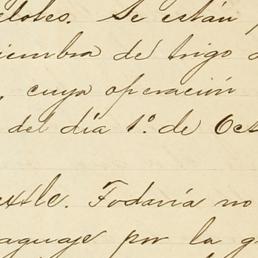 elotes. Se están
iembra de trigo
, cuya operación
del día 1º. de Oct
extle. Todavía no
aguaje por la g